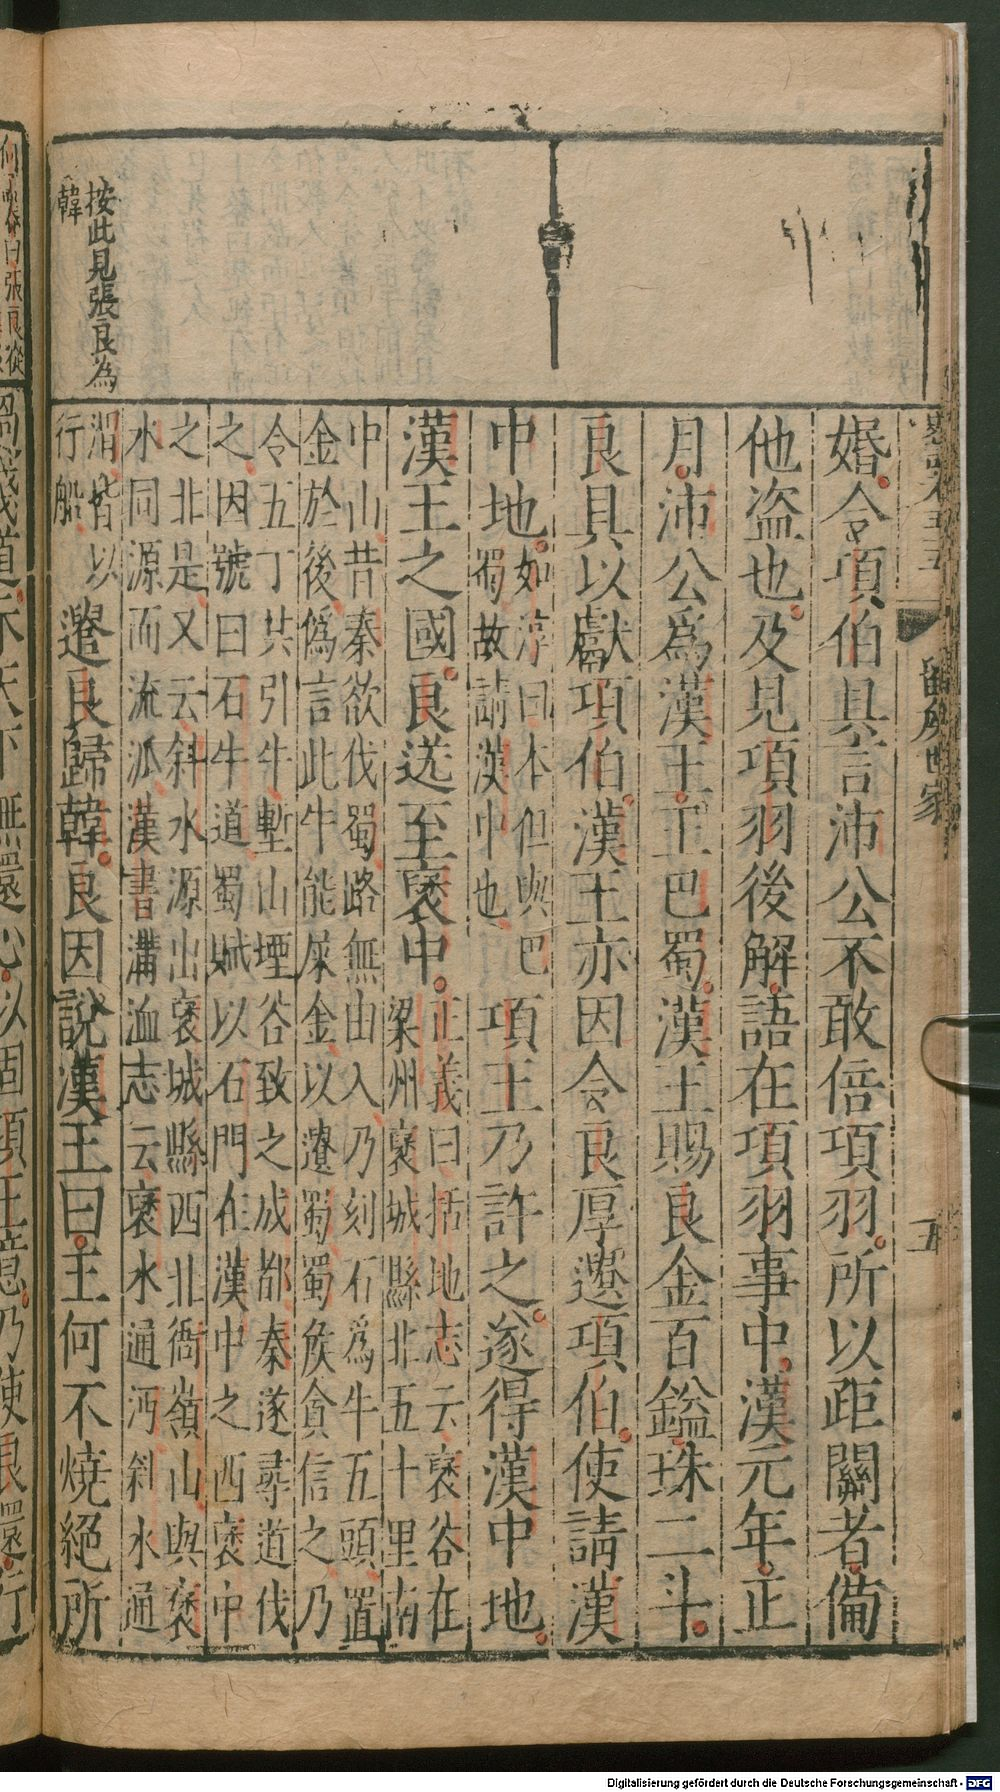 留矦世家
五
婚令項伯具言沛公不敢倍項羽所以距關者備
他盗也及見項羽後解語在項羽事中漢元年正
月沛公爲漢王王巴蜀漢王賜良金百鎰珠二斗
良具以獻項伯漢王亦因令良厚遺項伯使請漢
中地如淳曰本但與巴
蜀故請漢中也項王乃許之遂得漢中地
漢王之國良送至褒中正義曰括地志云褒谷在
梁州褒城縣北五十里南
中山昔秦欲伐蜀路無由入乃刻石爲牛五頭置
金於後僞言此牛能屎金以遺蜀蜀矦貪信之乃
令五丁共引牛塹山堙谷致之成都秦遂尋道伐
之因號曰石牛道蜀賦以石門在漢中之西褒中
之北是又云斜水源出褒城縣西北衙嶺山與褒
水同源而流派漢書溝洫志云褒水通沔斜水通
渭皆以
行船遣良歸韓良因說漢王曰王何不燒絕所
按此見張良為
韓
Digitalisierung gefördert durch die Deutsche Forschungsgemeinschaft - DFG